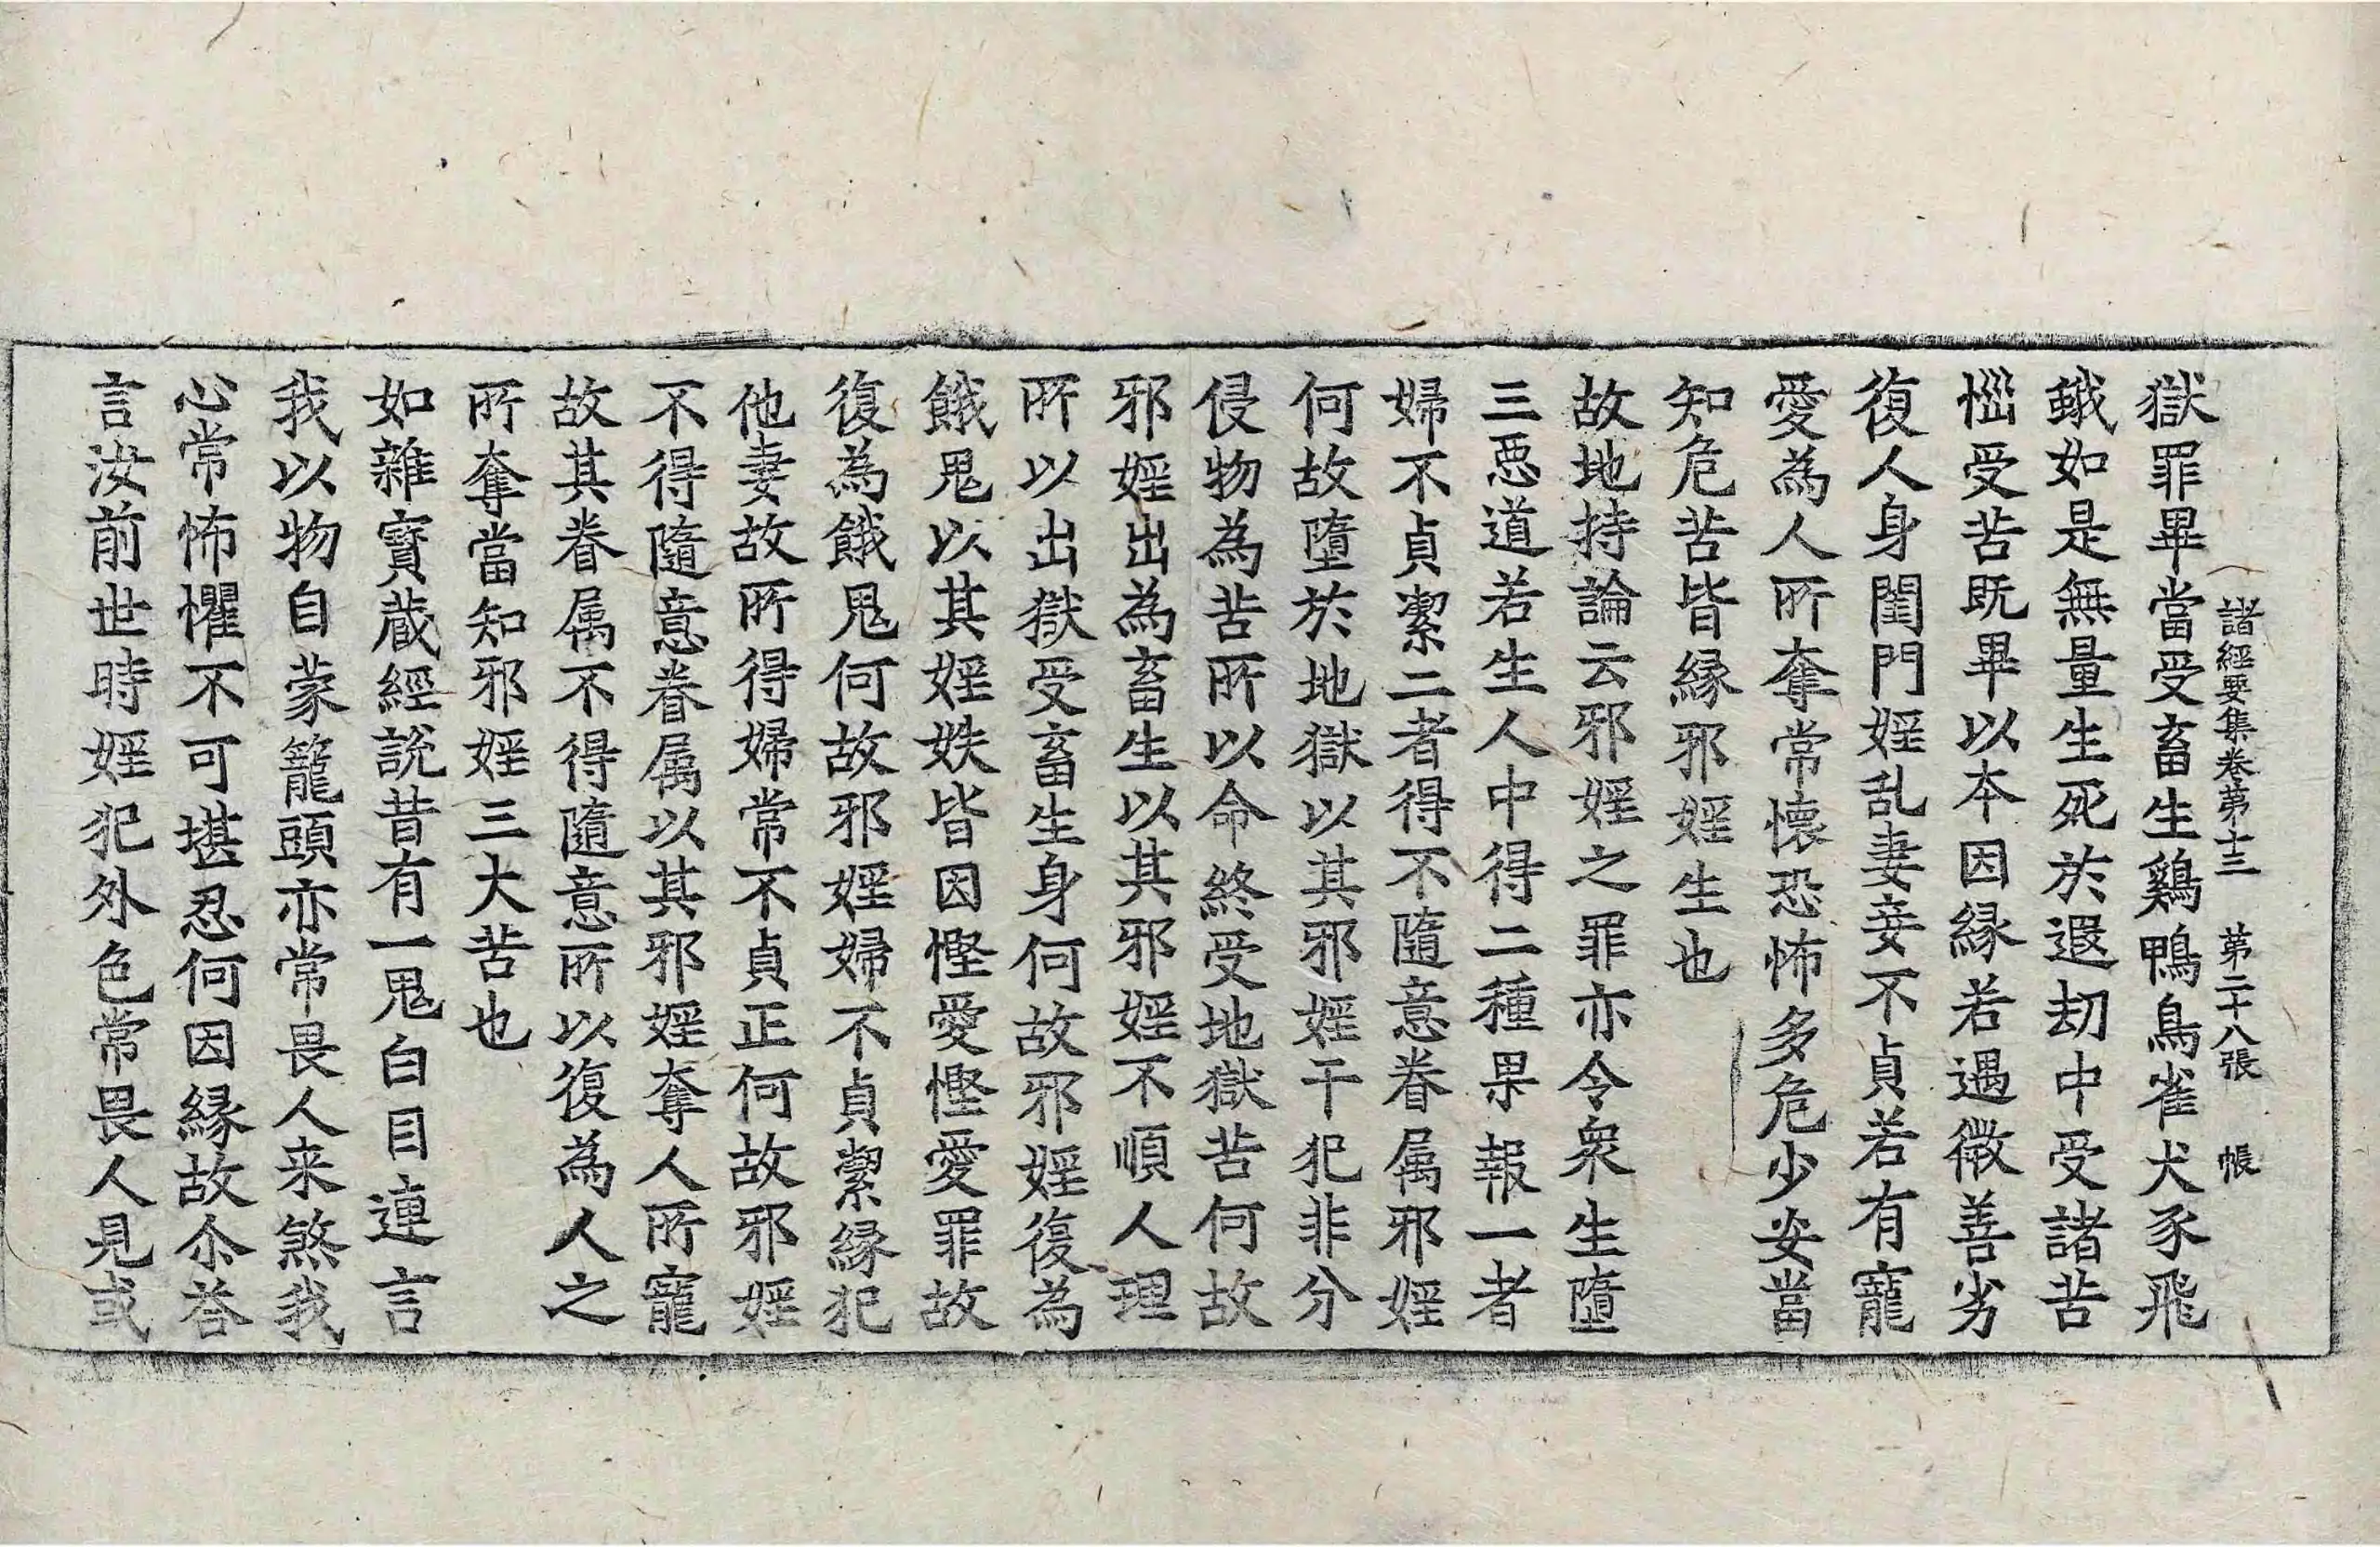 諸經要集卷第十三　第二十八張　帳
獄罪畢當受畜生鷄鴨鳥雀犬豕飛
蛾如是無量生死於遐刧中受諸苦
惱受苦既畢以本因縁若遇微善劣
復人身閨門婬乱妻妾不貞若有寵
愛為人所奪常懷恐怖多危少安當
知危苦皆縁邪婬生也
故地持論云邪婬之罪亦令衆生墮
三惡道若生人中得二種果報一者
婦不貞潔二者得不隨意眷属邪婬
何故墮於地獄以其邪婬干犯非分
侵物為苦所以命終受地獄苦何故
邪婬出為畜生以其邪婬不順人理
所以出獄受畜生身何故邪婬復為
餓鬼以其婬妷皆因慳愛慳愛罪故
復為餓鬼何故邪婬婦不貞潔縁犯
他妻故所得婦常不貞正何故邪婬
不得隨意眷属以其邪婬奪人所寵
故其眷属不得隨意所以復為人之
所奪當知邪婬三大苦也
如雜寶蔵經説昔有一鬼白目連言
我以物自蒙籠頭亦常畏人来煞我
心常怖懼不可堪忍何因縁故尒荅
言汝前世時婬犯外色常畏人見或